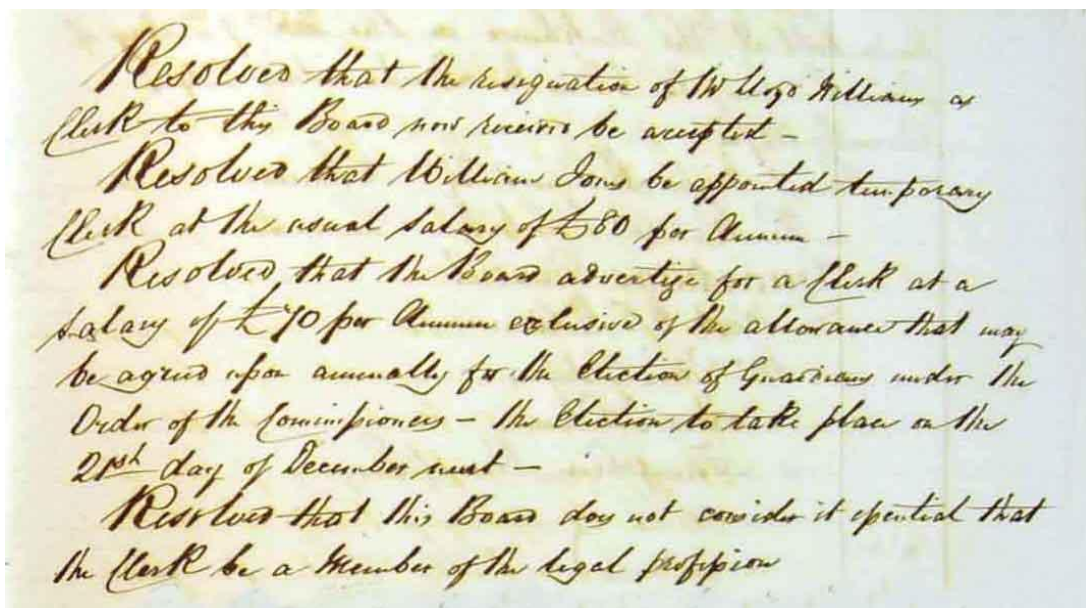 Resolved that the resignation of Mr Lloyd Williams as
Clerk to this Board now received be accepted —
Resolved that William Jones be appointed temporary
Clerk at the usual salary of £80 per Annum —
Resolved that the Board advertize for a Clerk at a
salary of £70 per Annum exclusive of the allowance that may
be agreed upon annually for the Election of Guardians under the
Order of the Commissioners — the Election to take place on the
21st day of December next —
Resolved that this Board does not consider it essential that
the Clerk be a Member of the legal profession